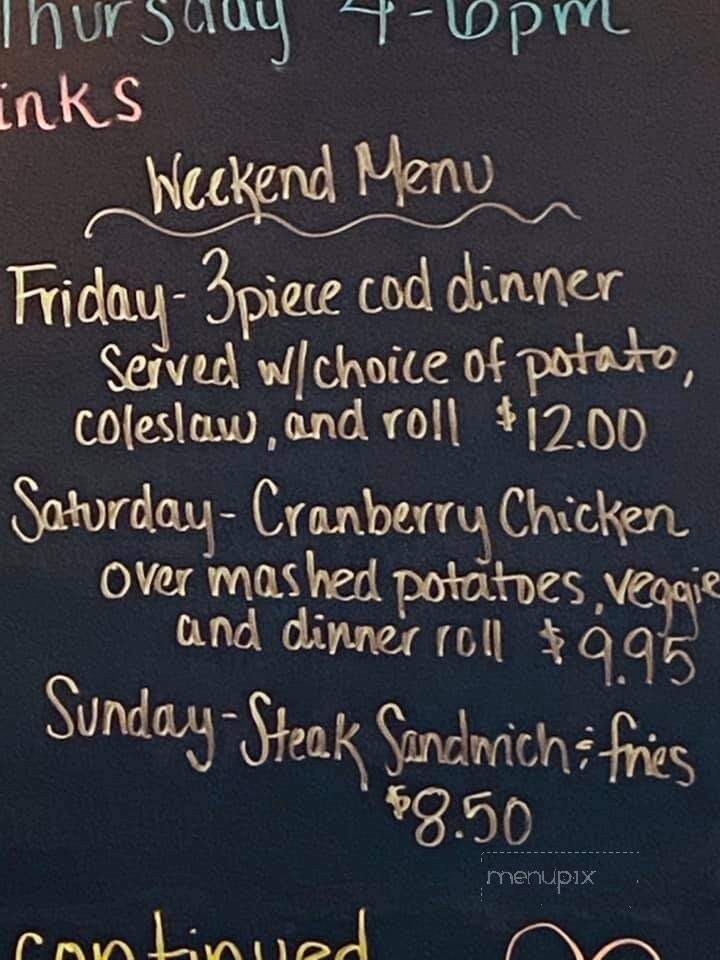 Thursday 4-6pm
inks
Weekend Menu
Friday- 3piece cod dinner
Served w/choice of potato,
coleslaw, and roll $12.00
Saturday- Cranberry Chicken
over mashed potatoes, veggie
and dinner roll $9.95
Sunday- Steak Sandwich & fries
$8.50
menupix
continued